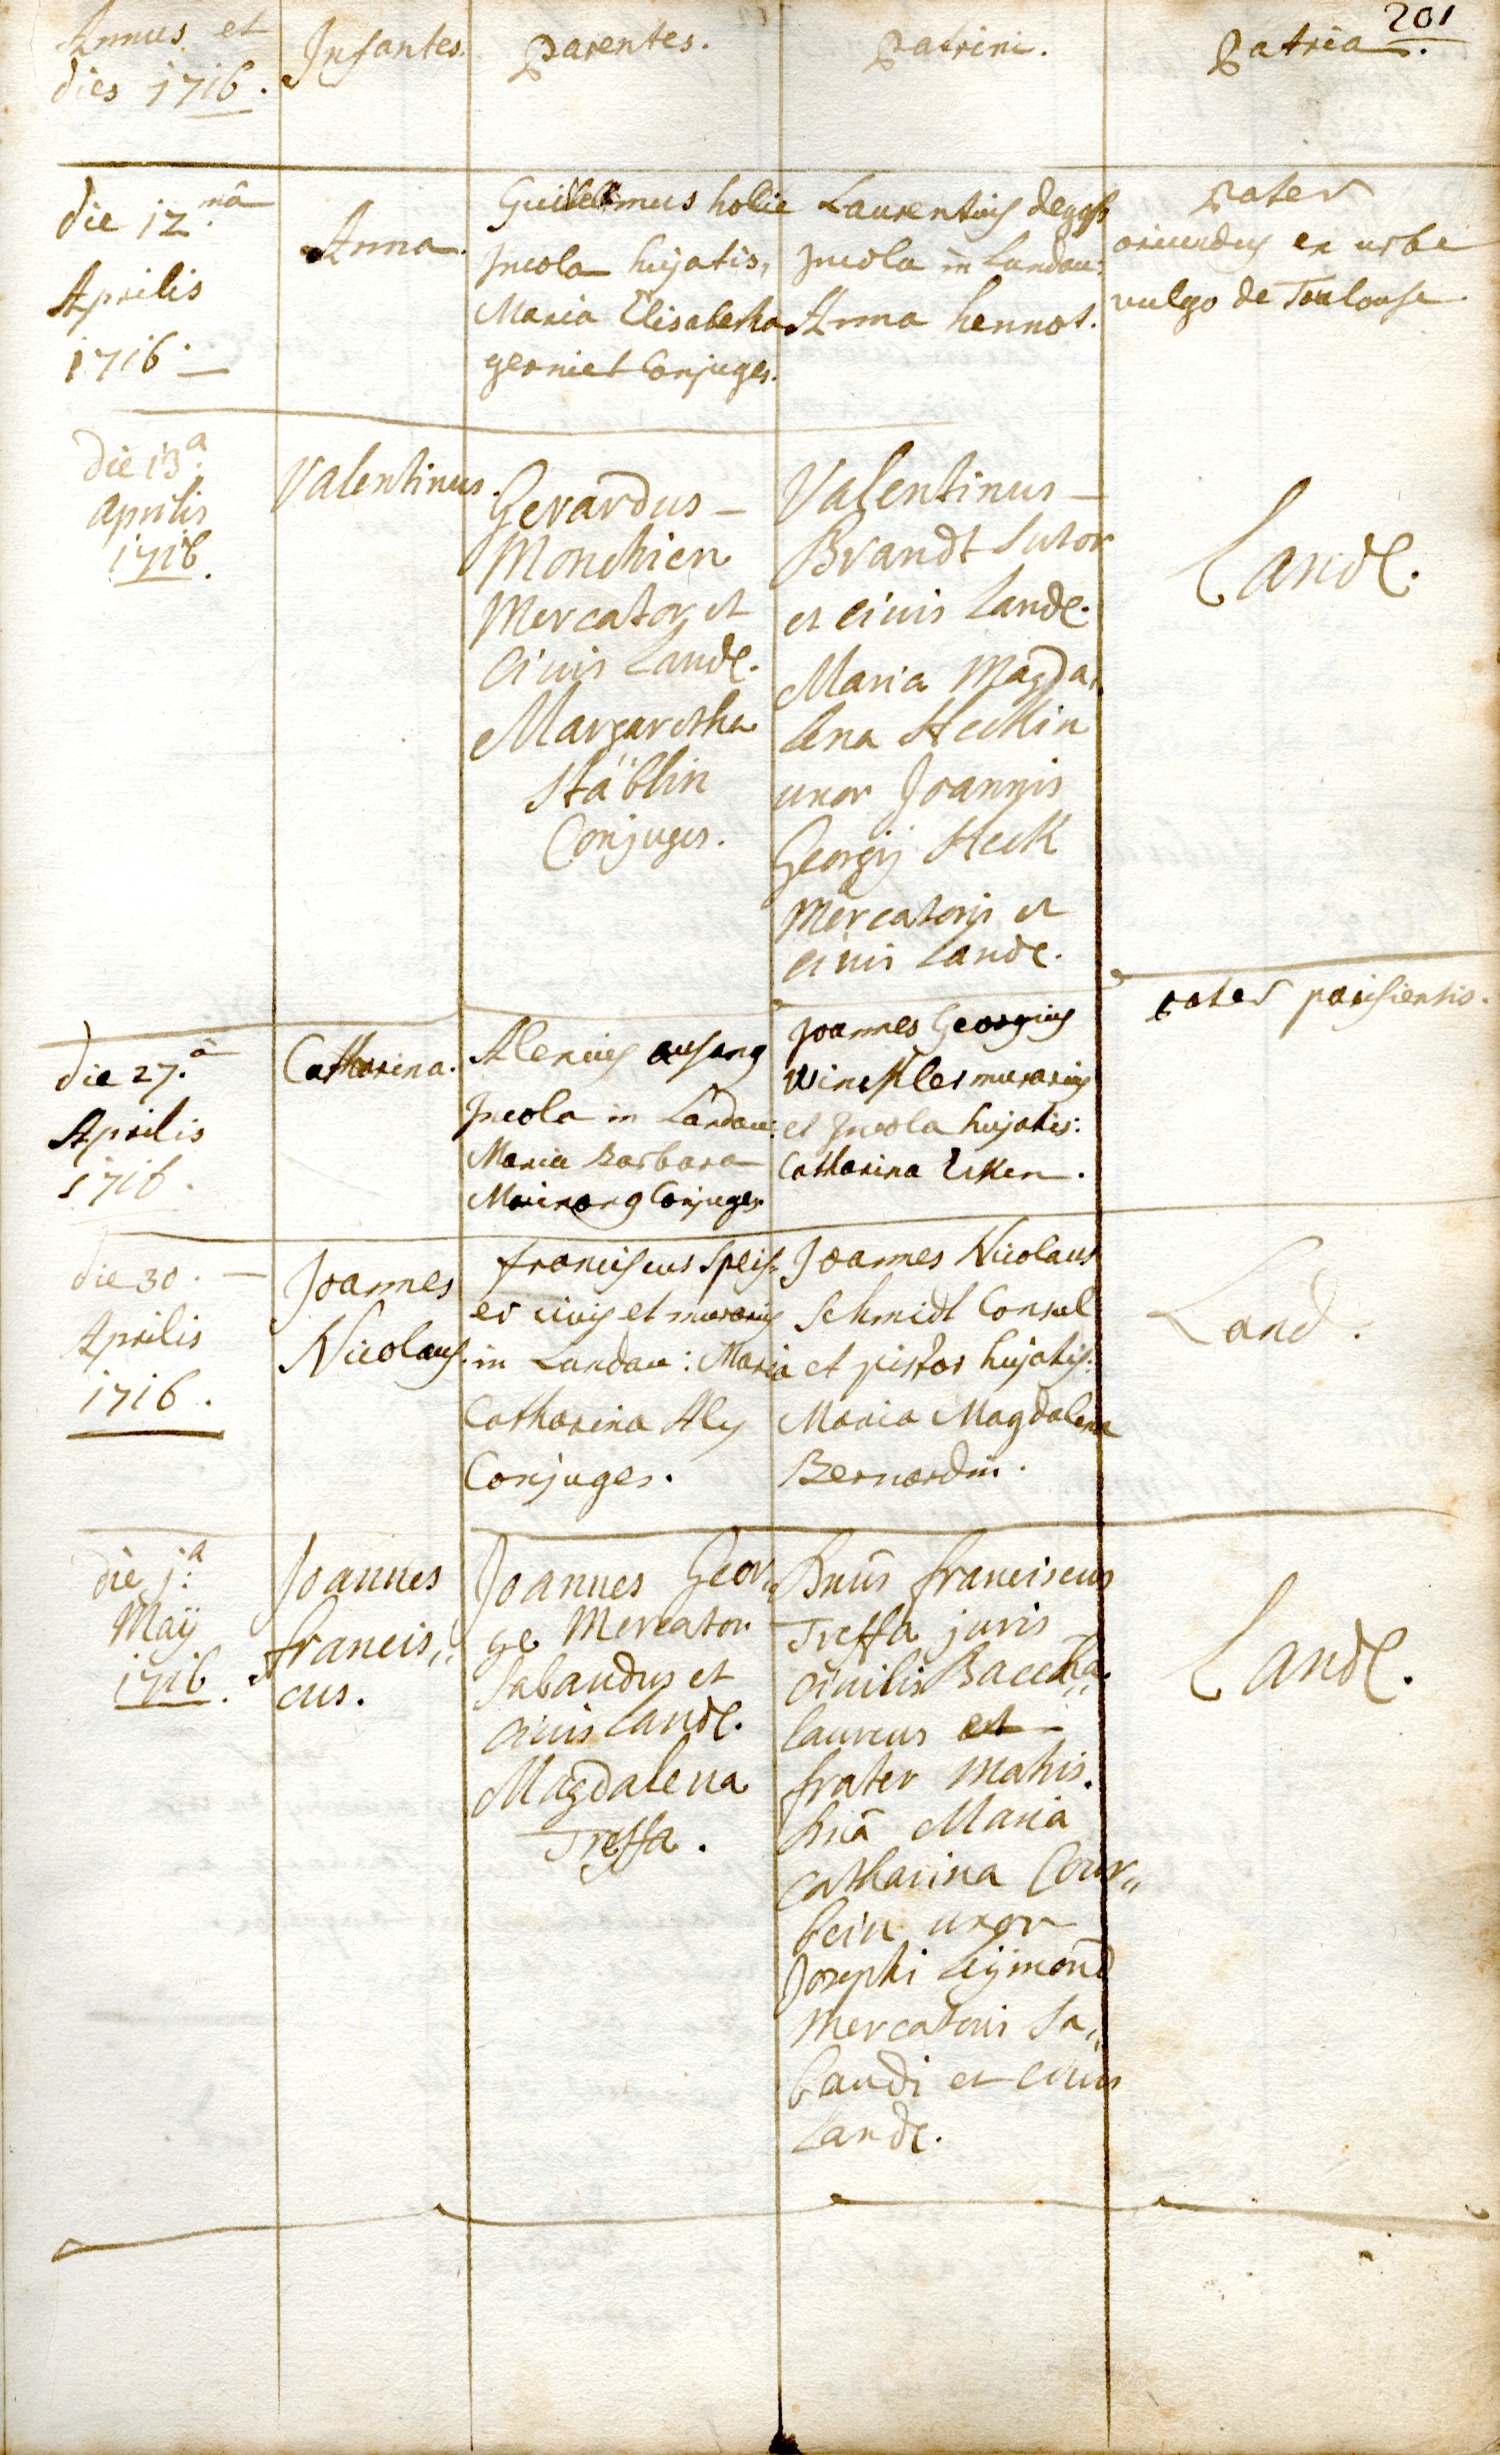 201
Annus et
dies 1716.
Infantes.
Parentes.
Patrini.
Patria.
die 12.mâ
Aprilis
1716.
Anna.
Guillelmus holie
Incola hujatis,
Maria Elisabetha
gerniet Conjuges.
Laurentius
Incola in Landau:
Anna hennot.
pater
oriundus ex urbe
vulgo de Toulouse.
die 13.a
aprilis
1716.
Valentinus.
Gerardus
Monchien
Mercator et
civis Landę.
Margaretha
Stäblin
Conjuges.
Valentinus
Brandt Sutor
et civis Landę.
Maria Magda,,
lena Heckin
uxor Joannis
Georgij Heck
Mercatoris et
civis Landę.
Landę.
die 27.â
Aprilis
1716.
Catharina.
Alexius
Incola in Landau:
Maria Barbara
Conjuges
Joannes Georgius
Winckler murarius
et Incola hujatis:
Catharina
pater parisiensis.
die 30.
Aprilis
1716.
Joannes
Nicolaus.
franciscus Speis,
er civis et murarius
in Landau: Maria
Catharina Aly
Conjuges.
Joannes Nicolaus
Schmidt Consul
et pistor hujatis:
Maria Magdalena
Bernardin.
Land.
die j.a
Maÿ
1716.
Joannes
francis,,
cus.
Joannes Geor,,
ge Mercator
Sabaudus et
civis Landę.
Magdalena
Treffa.
Dnus̄ franciscus
Treffa juris
civilis Baccha,,
laureus est
frater matris.
Dnā Maria
Catharina Cour,,
bein uxor
Josephi Lÿmond
Mercatoris Sa,,
baudi et civis
Landę.
Landę.